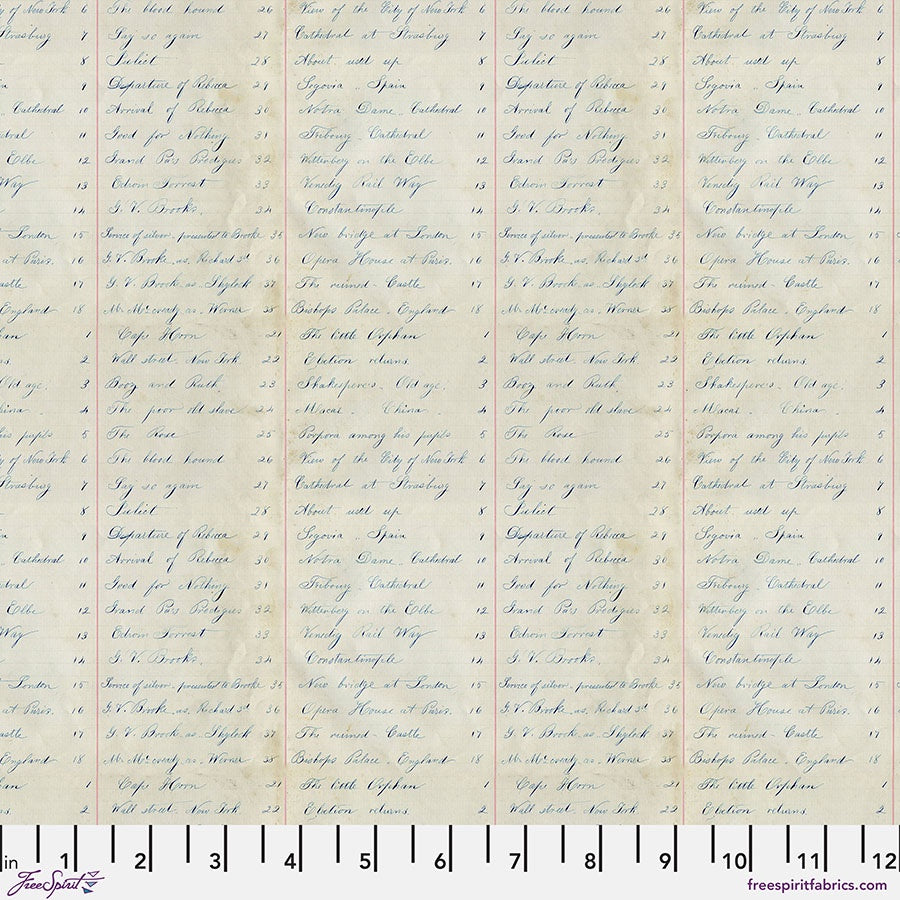 y of New York 6 The blood hound 26 View of the City of New York 6 The blood hound 26 View of the City of New York 6
Strasburg 7 Say so again 27 Cathedral at Strasburg 7 Say so again 27 Cathedral at Strasburg 7
8 Juliet 28 About used up 8 Juliet 28 About used up 8
9 Departure of Rebecca 29 Segovia .. Spain 9 Departure of Rebecca 29 Segovia .. Spain 9
Cathedral 10 Arrival of Rebecca 30 Notra Dame .. Cathedral 10 Arrival of Rebecca 30 Notra Dame .. Cathedral 10
dral 11 Good for Nothing 31 Fribourg . Cathedral 11 Good for Nothing 31 Fribourg . Cathedral 11
Elbe 12 Grand Pa's Prodigies 32 Wittenberg on the Elbe 12 Grand Pa's Prodigies 32 Wittenberg on the Elbe 12
Way 13 Edwin Forrest 33 Rail Way 13 Edwin Forrest 33 Rail Way 13
14 G. V. Brooke. 34 Constantinople 14 G. V. Brooke. 34 Constantinople 14
London 15 of silver . presented to Brooke 35 New bridge at London 15 of silver . presented to Brooke 35 New bridge at London 15
at Paris. 16 G. V. Brooke . as. Richard 3d 36 Opera House at Paris. 16 G. V. Brooke . as. Richard 3d 36 Opera House at Paris. 16
astle 17 G. V. Brooke . as .. Shylock 37 The ruined - Castle 17 G. V. Brooke . as .. Shylock 37 The ruined - Castle 17
England 18 Mr. McCready as . Werner 38 Bishops Palace . England 18 Mr. McCready as . Werner 38 Bishops Palace . England 18
han 1 Cape Horn 21 The little Orphan 1 Cape Horn 21 The little Orphan 1
s. 2 Wall street. New York 22 Election returns. 2 Wall street. New York 22 Election returns. 2
Old age. 3 Booz and Ruth 23 Shakespere's . Old age. 3 Booz and Ruth 23 Shakespere's . Old age. 3
hina . 4 The poor old slave 24 Macai . China . 4 The poor old slave 24 Macai . China . 4
his pupils 5 The Rose 25 Porpora among his pupils 5 The Rose 25 Porpora among his pupils 5
y of New York 6 The blood hound 26 View of the City of New York 6 The blood hound 26 View of the City of New York 6
Strasburg 7 Say so again 27 Cathedral at Strasburg 7 Say so again 27 Cathedral at Strasburg 7
8 Juliet 28 About used up 8 Juliet 28 About used up 8
9 Departure of Rebecca 29 Segovia .. Spain 9 Departure of Rebecca 29 Segovia .. Spain 9
Cathedral 10 Arrival of Rebecca 30 Notra Dame .. Cathedral 10 Arrival of Rebecca 30 Notra Dame .. Cathedral 10
dral 11 Good for Nothing 31 Fribourg . Cathedral 11 Good for Nothing 31 Fribourg . Cathedral 11
Elbe 12 Grand Pa's Prodigies 32 Wittenberg on the Elbe 12 Grand Pa's Prodigies 32 Wittenberg on the Elbe 12
Way 13 Edwin Forrest 33 Rail Way 13 Edwin Forrest 33 Rail Way 13
14 G. V. Brooke. 34 Constantinople 14 G. V. Brooke. 34 Constantinople 14
London 15 of silver . presented to Brooke 35 New bridge at London 15 of silver . presented to Brooke 35 New bridge at London 15
at Paris. 16 G. V. Brooke . as. Richard 3d 36 Opera House at Paris. 16 G. V. Brooke . as. Richard 3d 36 Opera House at Paris. 16
astle 17 G. V. Brooke . as .. Shylock 37 The ruined - Castle 17 G. V. Brooke . as .. Shylock 37 The ruined - Castle 17
England 18 Mr. McCready as . Werner 38 Bishops Palace . England 18 Mr. McCready as . Werner 38 Bishops Palace . England 18
han 1 Cape Horn 21 The little Orphan 1 Cape Horn 21 The little Orphan 1
s. 2 Wall street. New York 22 Election returns. 2 Wall street. New York 22 Election returns. 2
in 1 2 3 4 5 6 7 8 9 10 11 12
FreeSpirit freespiritfabrics.com